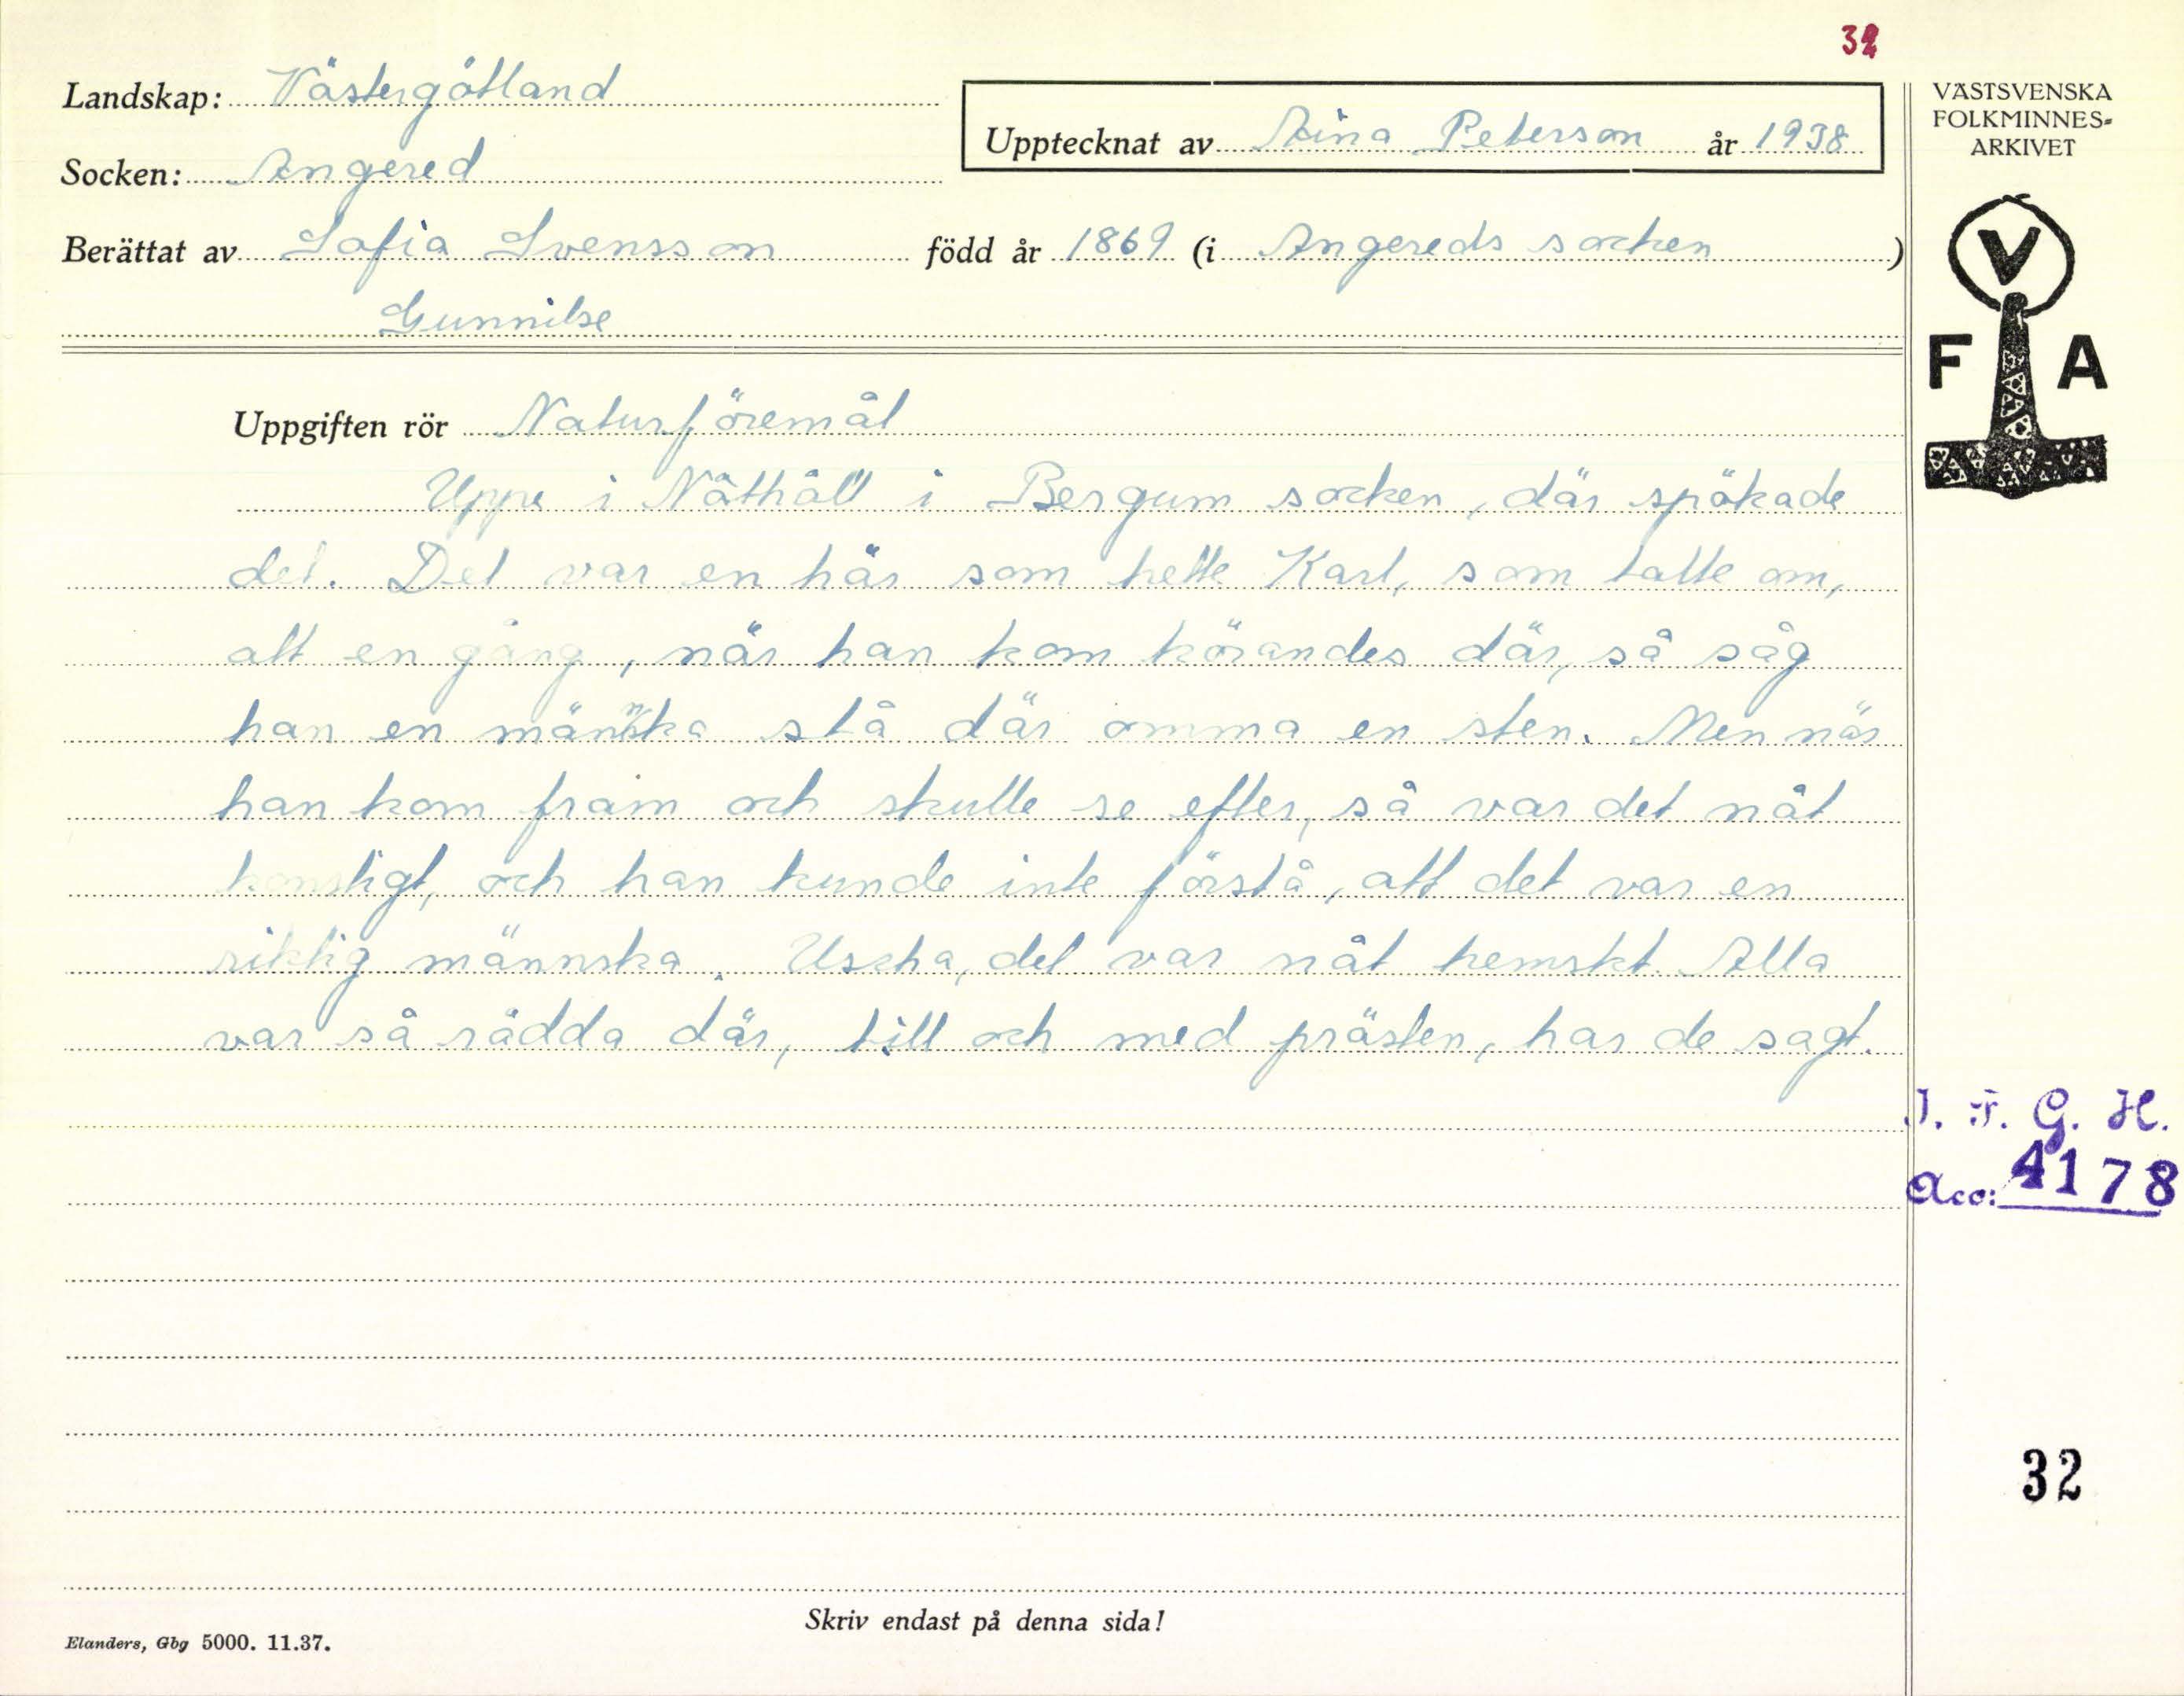 32
Landskap: Västergötland
Upptecknat av Aina Peterson år 1938
Socken: Angered
Berättat av Sofia Svensson född år 1869 (i Angereds socken)
Gunnilse
Uppgiften rör Naturföremål
Uppe i Nåthåll i Bergum socken, där spökade
det. Det var en här som hette Karl, som talte om,
att en gång, när han kom körandes där, så såg
han en männska stå där omma en sten. Men när
han kom fram och skulle se efter, så var det nåt
konstigt, och han kunde inte förstå, att det var en
riktig männska. Uscha, det var nåt hemskt. Alla
var så rädda där, till och med prästen, har de sagt.
Skriv endast på denna sida!
Elanders, Gbg 5000. 11.37.
VÄSTSVENSKA
FOLKMINNES-
ARKIVET
V
F A
I. F. G. H.
Acc: 4178
32